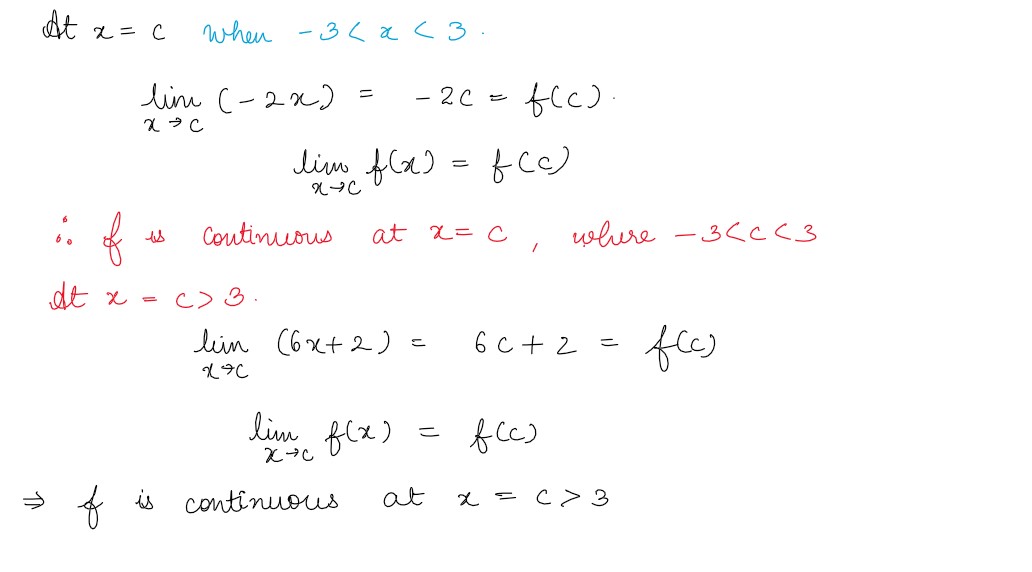 At x = c when -3 < x < 3.
lim x→c (-2x) = -2c = f(c).
lim x→c f(x) = f(c)
∴ f is continuous at x = c , where -3 < c < 3
At x = c > 3.
lim x→c (6x+2) = 6c + 2 = f(c)
lim x→c f(x) = f(c)
⇒ f is continuous at x = c > 3